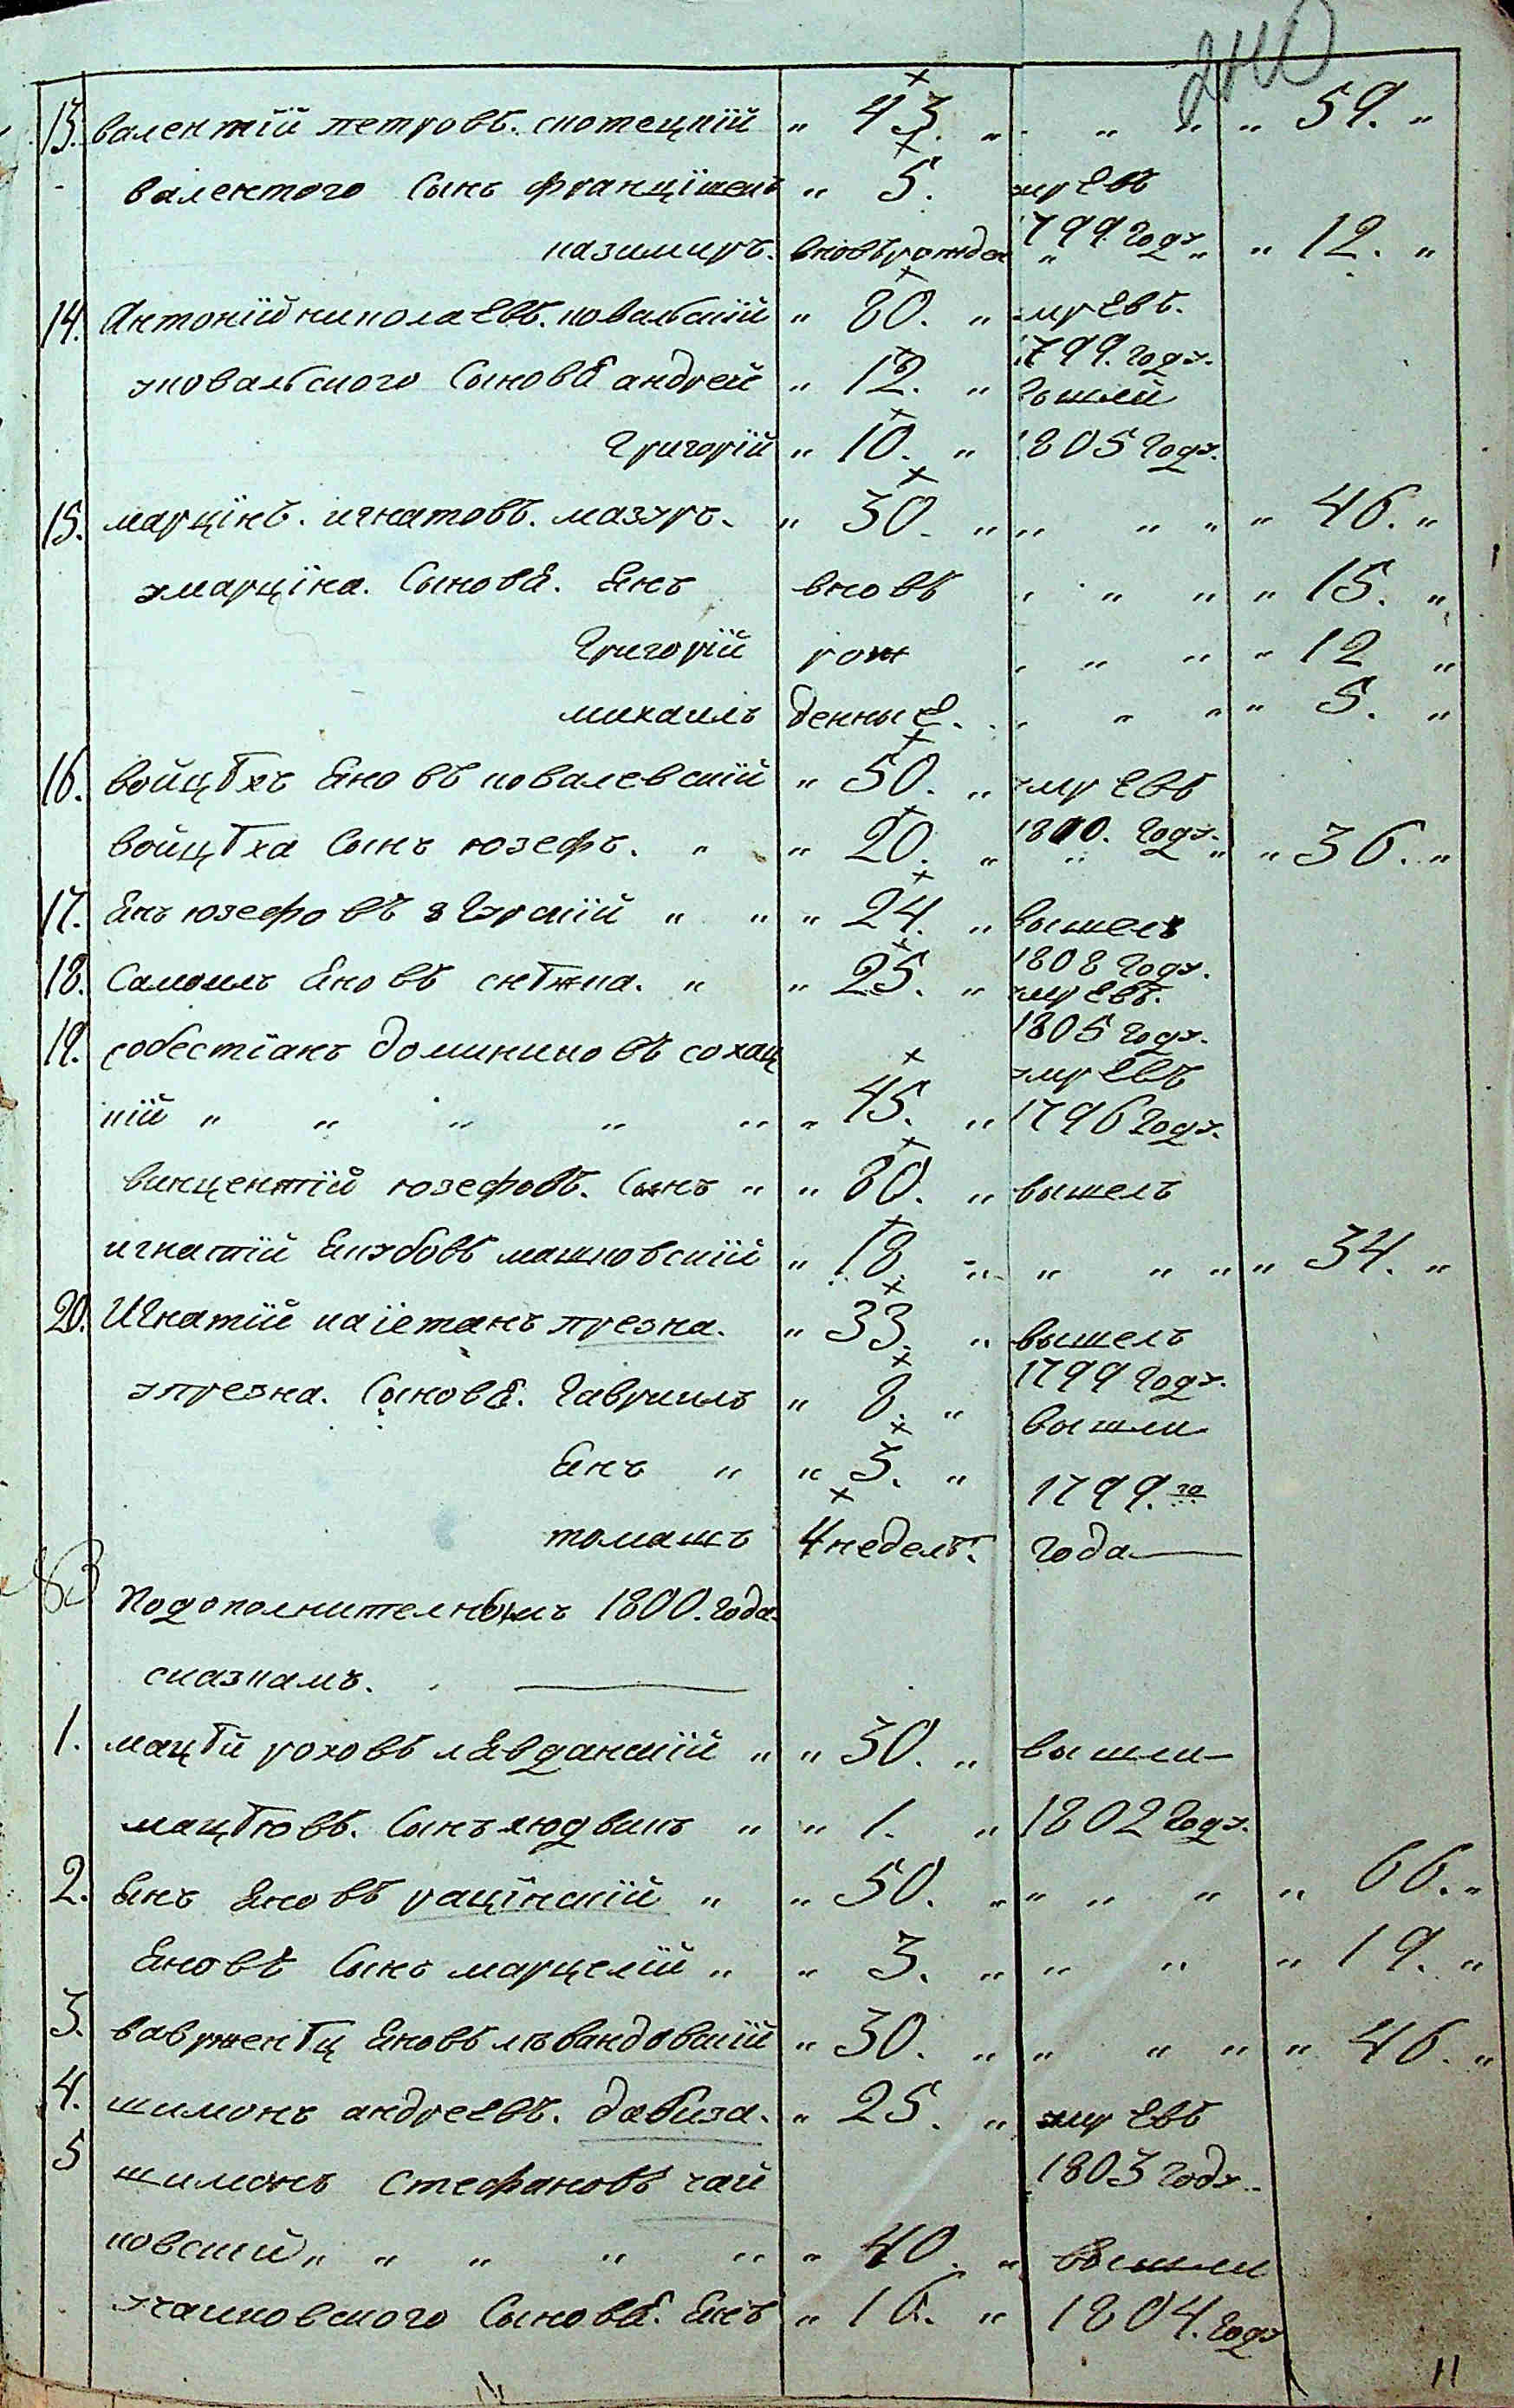 240
13. валентій петровъ. скотецкій " 43. " " " " 59. "
валентого Сынъ Францішекъ " 5. умрЕвъ
казимиръ. вновърожден 1799 Году " " 12. "
14. Антоній николаЕвъ. ковальскій " 80. " умрЕвъ.
уковальского СыновЯ андрей " 12. " 1799. Году. вышли
Григорій " 10. " 1805 Году.
15. марцінъ. игнатовъ. мазуръ. " 30. " " " " " 46. "
умарціна. СыновЯ. Янъ вновь " " " " 15. "
Григорій рож " " " " 12 "
михаилъ денныЕ. " " " " 5. "
16. войцѣхъ Яновъ ковалевскій " 50. " умрЕвъ
войцѣха Сынъ юзефъ. " " 20. " 1800. Году. " " 36. "
17. Янъ юзефовъ згурскій " " " 24. " вышелъ
1808 Году.
18. Самоилъ Яновъ снѣжка. " " 25. " умрЕвъ.
1805 Году.
19. собестіанъ доминиковъ сохац умрЕвъ
кій " " " " " " 45. " 1796 Году.
винцентій юзефовъ. Сынъ " " 80. " вышелъ
игнатій Якубовъ машковскій " 18. " " " " " 34. "
20. Игнатій каіетанъ презна. " 33. " вышелъ
1799 Году.
упрезна. СыновЯ. Гавриилъ " 8. " вышли
Янъ " " 3. " 1799. го
томашъ 4 недель. года
Подополнителнымъ 1800. Года
сказкамъ.
1. мацѣй роховъ лЯвданскій " " 30. " вышли
мацѣювъ. Сынъ людвикъ " " 1. " 1802 Году.
2. Янъ Яновъ рацінскій " " 50. " " " " " 66. "
Яновъ Сынъ марцелій " " 3. " " " " 19. "
3. вавржентц Яновъ лѣвандовскій " 30. " " " " " 46. "
4. шимонъ андреЕвъ. дабиза. " 25. " умрЕвъ
1803 Году.
5 шимонъ Стефановъ чай
ковский " " " " " " 40. " вышли
учайковского СыновЯ. Янъ " 16. " 1804. Году
11